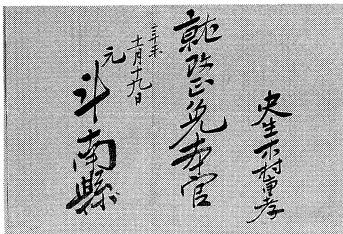 史生木村重孝
就改正免本官
辛未
十一月十九日
元
斗南縣